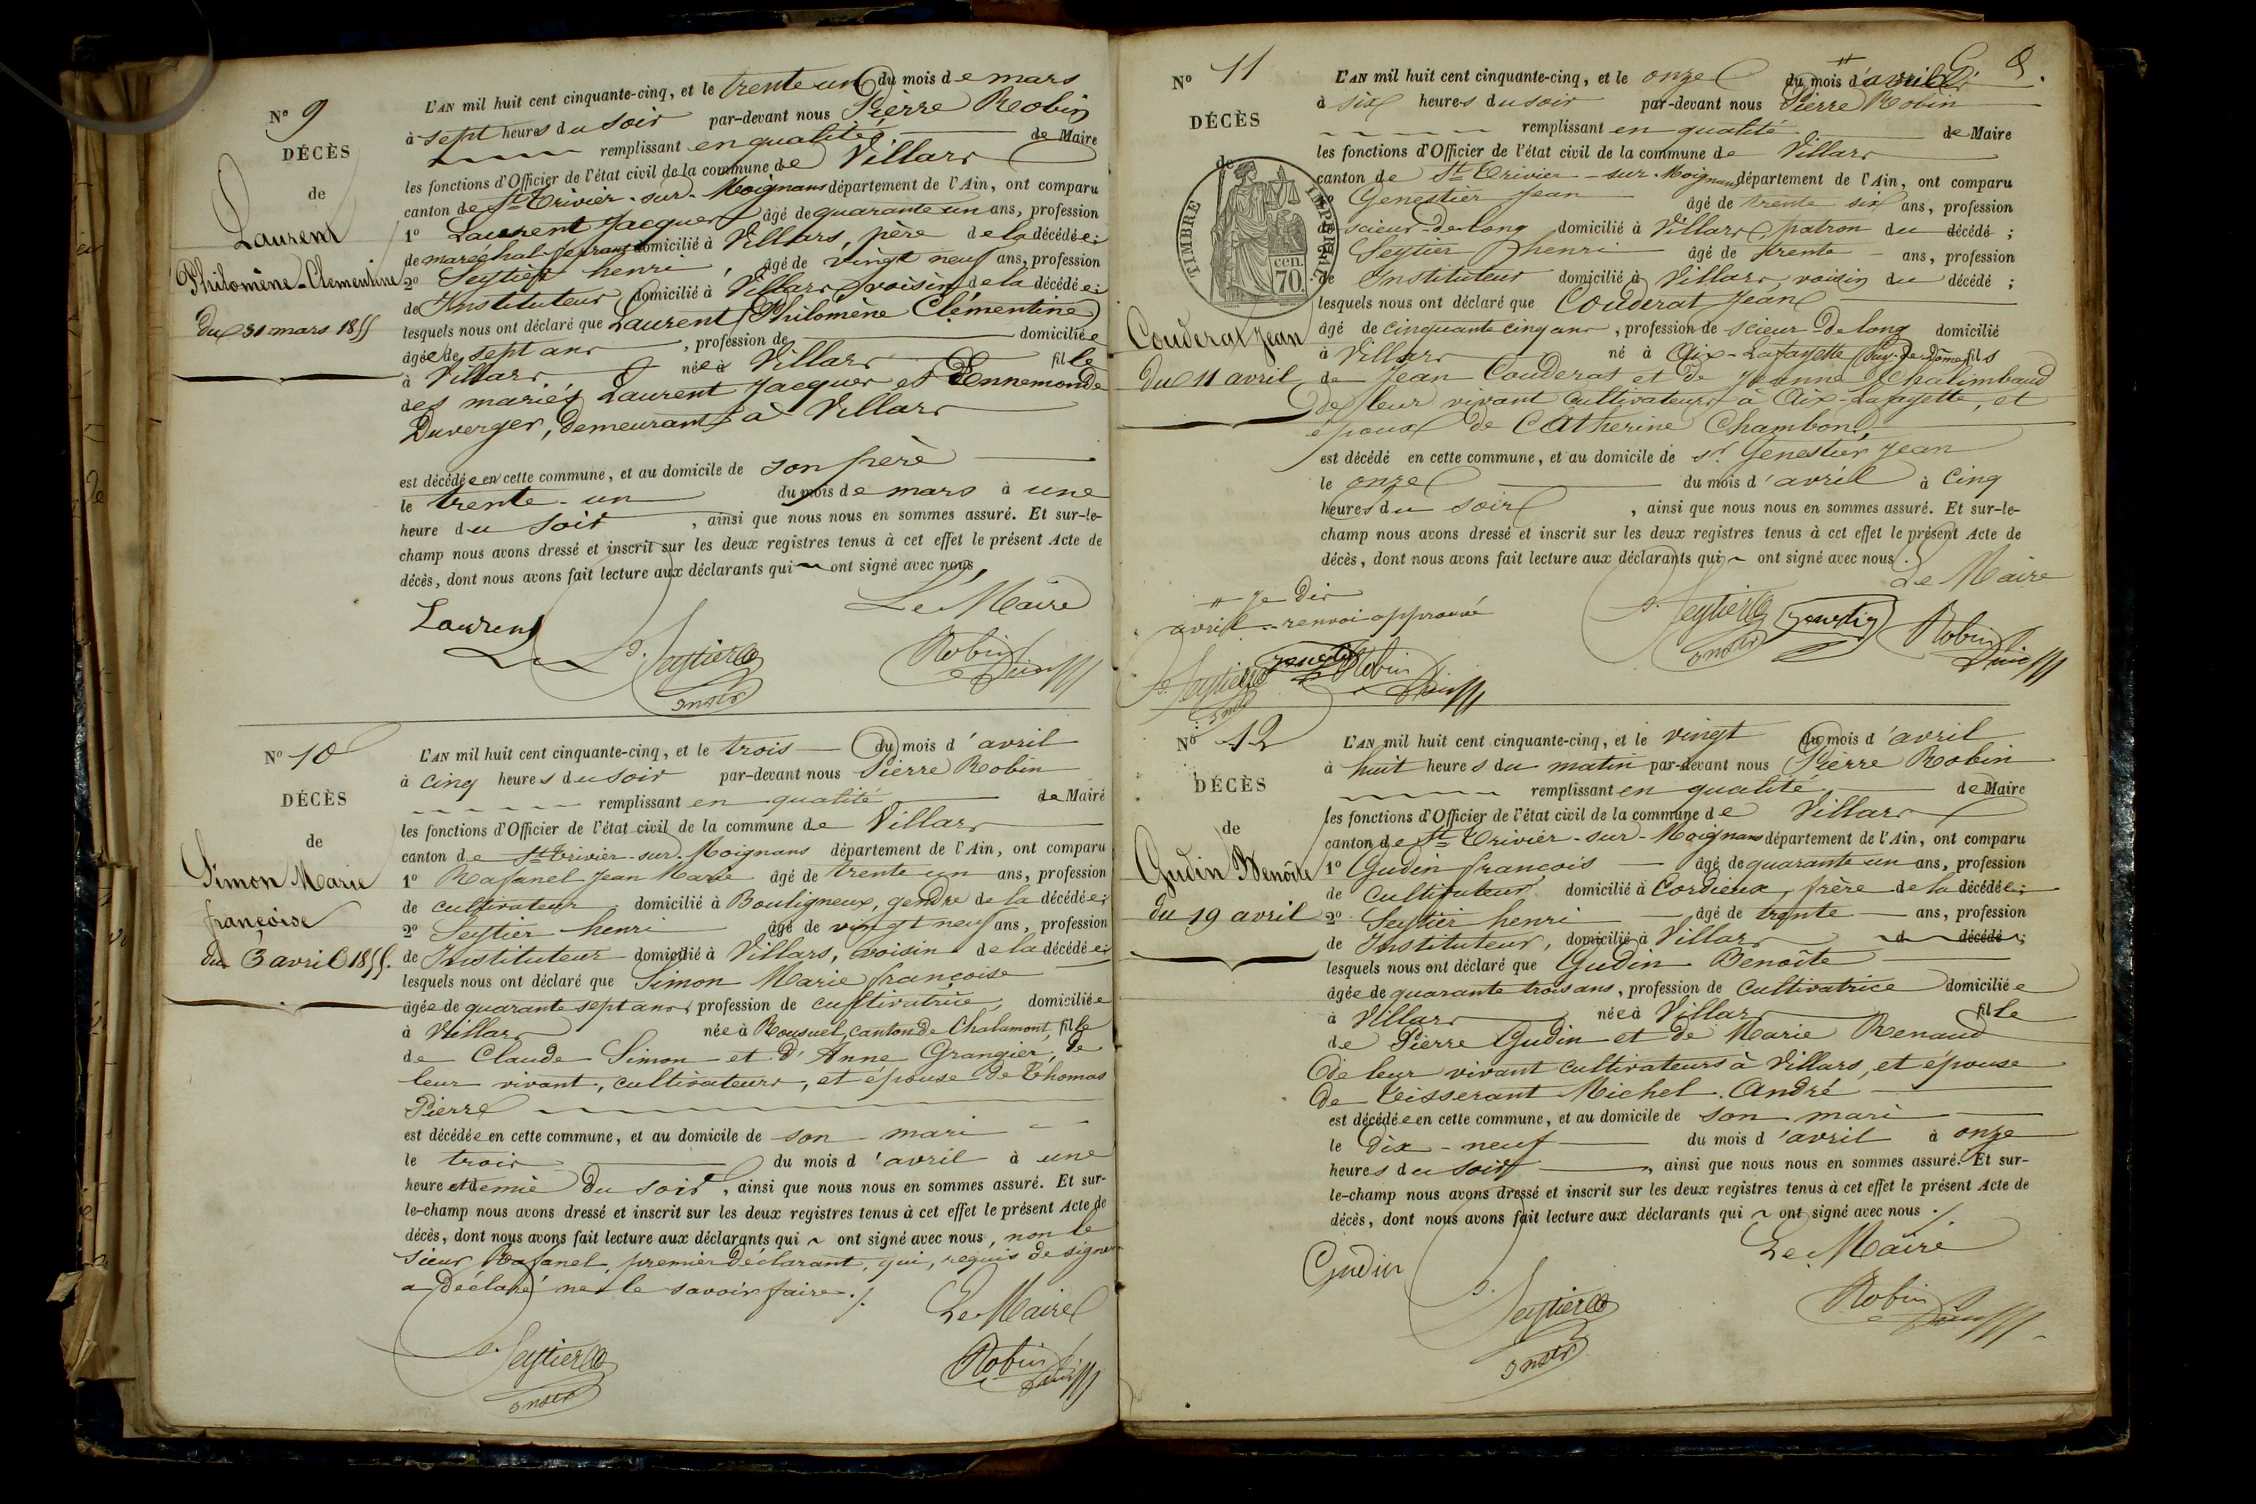 N° 9
DÉCÈS
de
Laurent
Philomène-Clementine
du 31 mars 1855
L'AN mil huit cent cinquante-cinq, et le trente un du mois de mars
à sept heures du soir par-devant nous Pierre Robin
remplissant en qualité de Maire
les fonctions d'Officier de l'état civil de la commune de Villars
canton de St Trivier-sur-Moignans département de l'Ain, ont comparu
1° Laurent Jacques âgé de quarante un ans, profession
de marechal-ferrant domicilié à Villars, père de la décédée;
2° Seytier henri, âgé de vingt neuf ans, profession
de Instituteur domicilié à Villars voisin de la décédée;
lesquels nous ont déclaré que Laurent Philomène Clémentine
âgée de sept ans, profession de domiciliée
à Villars née à Villars fille
des mariés Laurent Jacques et Ennemonde
Duverger, demeurant à Villars
est décédée en cette commune, et au domicile de son père
le trente-un du mois de mars à une
heure du soir, ainsi que nous nous en sommes assuré. Et sur-le-
champ nous avons dressé et inscrit sur les deux registres tenus à cet effet le présent Acte de
décès, dont nous avons fait lecture aux déclarants qui ont signé avec nous,
Le Maire
Laurent
Seytier
instr
Robin
N° 10
DÉCÈS
de
Simon Marie
françoise
du 3 avril 1855.
L'AN mil huit cent cinquante-cinq, et le trois du mois d'avril
à cinq heures du soir par-devant nous Pierre Robin
remplissant en qualité de Maire
les fonctions d'Officier de l'état civil de la commune de Villars
canton de St Trivier-sur-Moignans département de l'Ain, ont comparu
1° Rafanel Jean Marie âgé de trente un ans, profession
de cultivateur domicilié à Bouligneux, gendre de la décédée;
2° Seytier henri âgé de vingt neuf ans, profession
de Instituteur domicilié à Villars, voisin de la décédée;
lesquels nous ont déclaré que Simon Marie françoise
âgée de quarante sept ans, profession de cultivatrice, domiciliée
à Villars née à Ronsuel, canton de Chalamont, fille
de Claude Simon et d'Anne Grangier, de
leur vivant, cultivateurs, et épouse de Thomas
Pierre
est décédée en cette commune, et au domicile de son mari
le trois du mois d'avril à une
heure et demie du soir, ainsi que nous nous en sommes assuré. Et sur-
le-champ nous avons dressé et inscrit sur les deux registres tenus à cet effet le présent Acte de
décès, dont nous avons fait lecture aux déclarants qui ont signé avec nous, non le
sieur Rafanel, premier déclarant, qui, requis de signer
a déclaré ne le savoir faire./.
Le Maire
Seytier
instr
Robin
8.
N° 11
DÉCÈS
de
TIMBRE IMPÉRIAL
70 cen.
Couderat Jean
du 11 avril
L'AN mil huit cent cinquante-cinq, et le onze du mois d'avril
à six heures du soir par-devant nous Pierre Robin
remplissant en qualité de Maire
les fonctions d'Officier de l'état civil de la commune de Villars
canton de St Trivier-sur-Moignans département de l'Ain, ont comparu
1° Genestier Jean âgé de trente six ans, profession
de scieur-de-long domicilié à Villars, patron du décédé;
2° Seytier henri âgé de trente ans, profession
de Instituteur domicilié à Villars, voisin du décédé;
lesquels nous ont déclaré que Couderat Jean
âgé de cinquante cinq ans, profession de scieur de long domicilié
à Villars né à Aix-Lafayette (Puy-de-Dôme) fils
de Jean Couderat et de Jeanne Chalimbaud
de leur vivant cultivateurs à Aix-Lafayette, et
époux de Catherine Chambon,
est décédé en cette commune, et au domicile de sr Genestier Jean
le onze du mois d'avril à cinq
heures du soir, ainsi que nous nous en sommes assuré. Et sur-le-
champ nous avons dressé et inscrit sur les deux registres tenus à cet effet le présent Acte de
décès, dont nous avons fait lecture aux déclarants qui ont signé avec nous./.
Le Maire
avril renvoi approuvé
Seytier
instr
Robin
Seytier
instr
Robin
N° 12
DÉCÈS
de
Gudin Benoîte
du 19 avril
L'AN mil huit cent cinquante-cinq, et le vingt du mois d'avril
à huit heures du matin par-devant nous Pierre Robin
remplissant en qualité de Maire
les fonctions d'Officier de l'état civil de la commune de Villars
canton de St Trivier-sur-Moignans département de l'Ain, ont comparu
1° Gudin françois âgé de quarante un ans, profession
de cultivateur domicilié à Cordieux, frère de la décédée;
2° Seytier henri âgé de trente ans, profession
de Instituteur, domicilié à Villars d décédé;
lesquels nous ont déclaré que Gudin Benoîte
âgée de quarante trois ans, profession de cultivatrice domiciliée
à Villars née à Villars fille
de Pierre Gudin et de Marie Renaud
de leur vivant cultivateurs à Villars, et épouse
de Teisserant Michel André
est décédée en cette commune, et au domicile de son mari
le dix-neuf du mois d'avril à onze
heures du soir, ainsi que nous nous en sommes assuré. Et sur-
le-champ nous avons dressé et inscrit sur les deux registres tenus à cet effet le présent Acte de
décès, dont nous avons fait lecture aux déclarants qui ont signé avec nous./.
Le Maire
Gudin
Seytier
instr
Robin